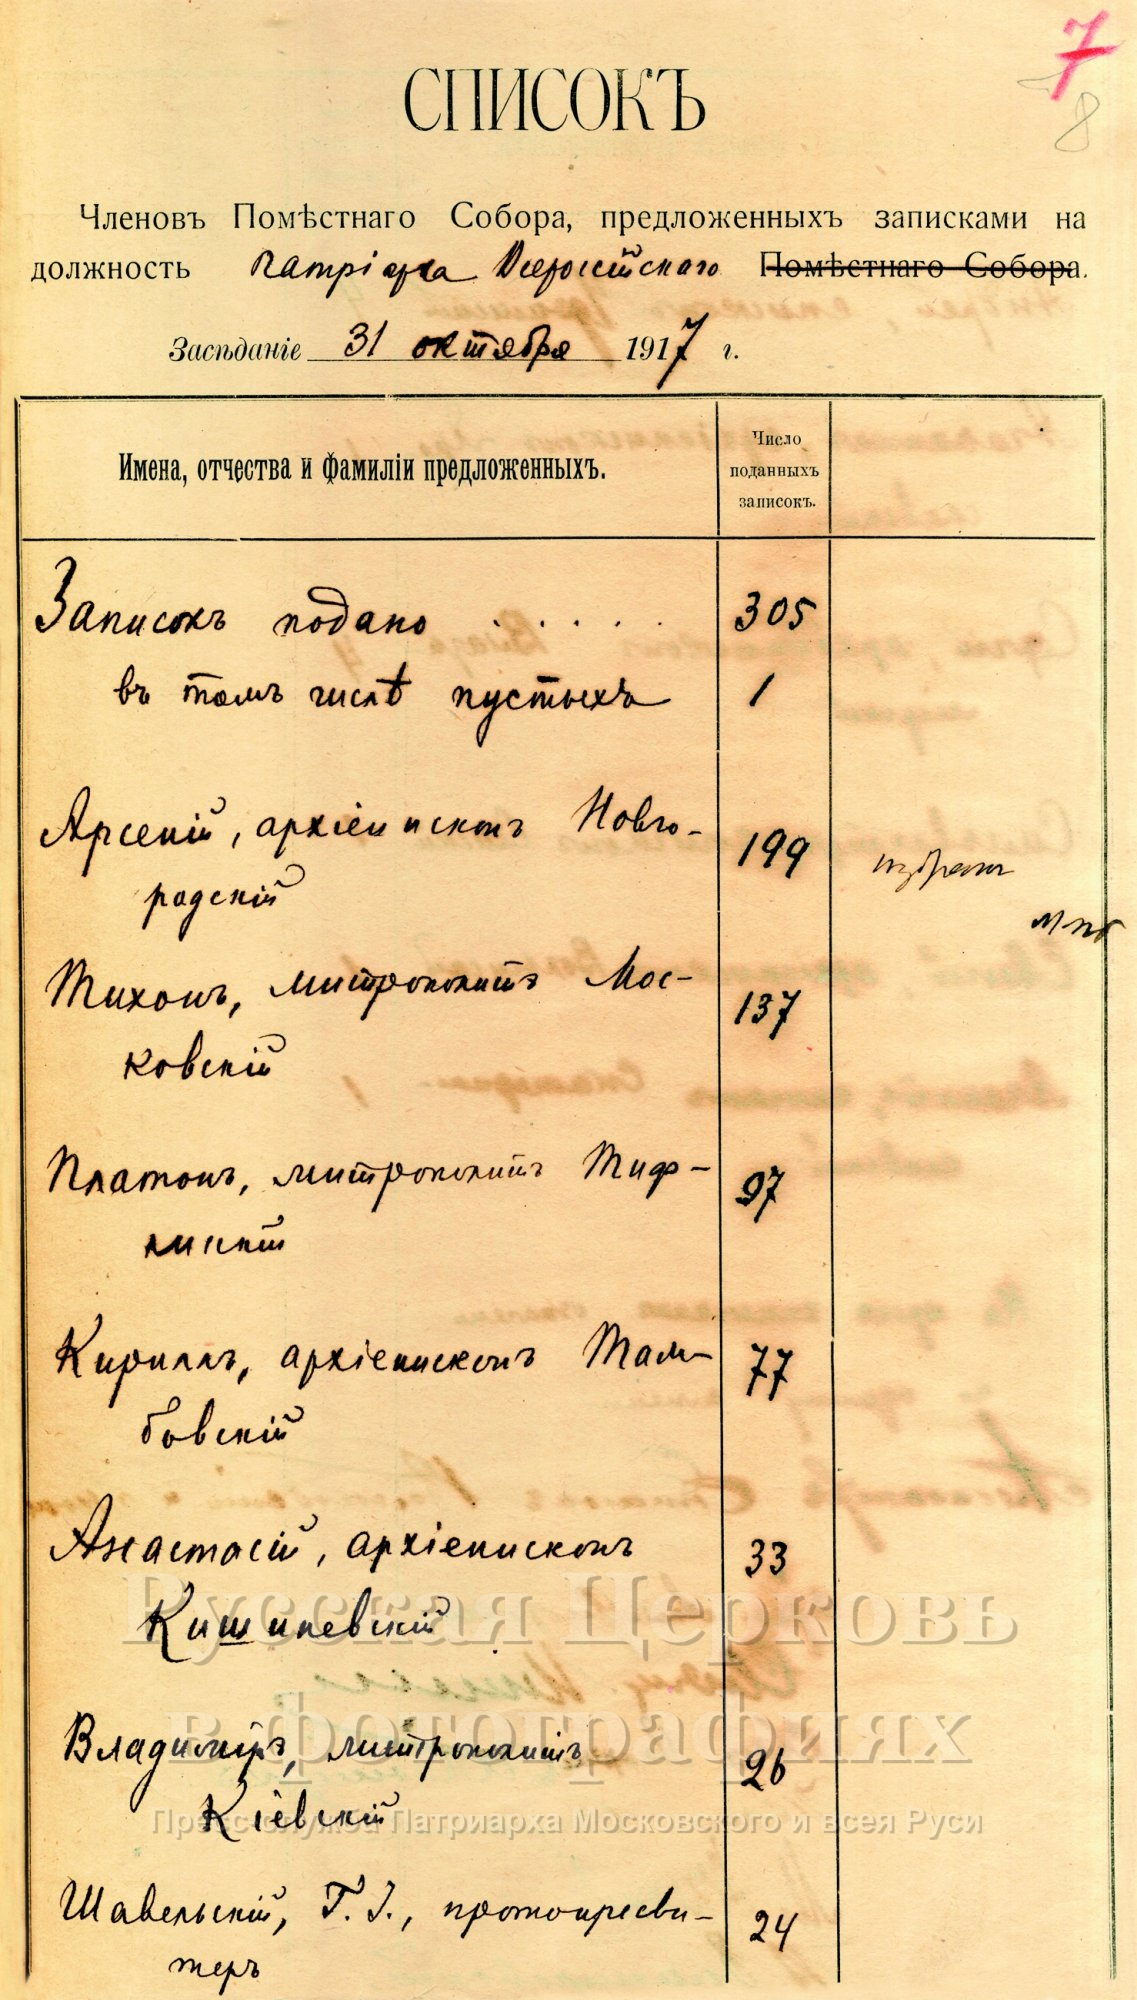 7
8
СПИСОКЪ
Членовъ Помѣстнаго Собора, предложенныхъ записками на
должность Патріарха Всероссійскаго Помѣстнаго Собора.
Засѣданіе 31 октября 1917 г.
Имена, отчества и фамиліи предложенныхъ.
Число
поданныхъ
записокъ.
Записокъ подано . . . . . 305
въ томъ числѣ пустыхъ 1
Арсеній, архіепископъ Новго- 199 избранъ
радскій
Тихонъ, митрополитъ Мос- 137
ковскій
Платонъ, митрополитъ Тиф- 97
лисскій
Кириллъ, архіепископъ Там- 77
бовскій
Анастасій, архіепископъ 33
Кишиневскій
Владиміръ, митрополитъ 26
Кіевскій
Шавельскій, Г. І., протопресви- 24
теръ
Русская Церковь
в фотографиях
Пресс-служба Патриарха Московского и всея Руси